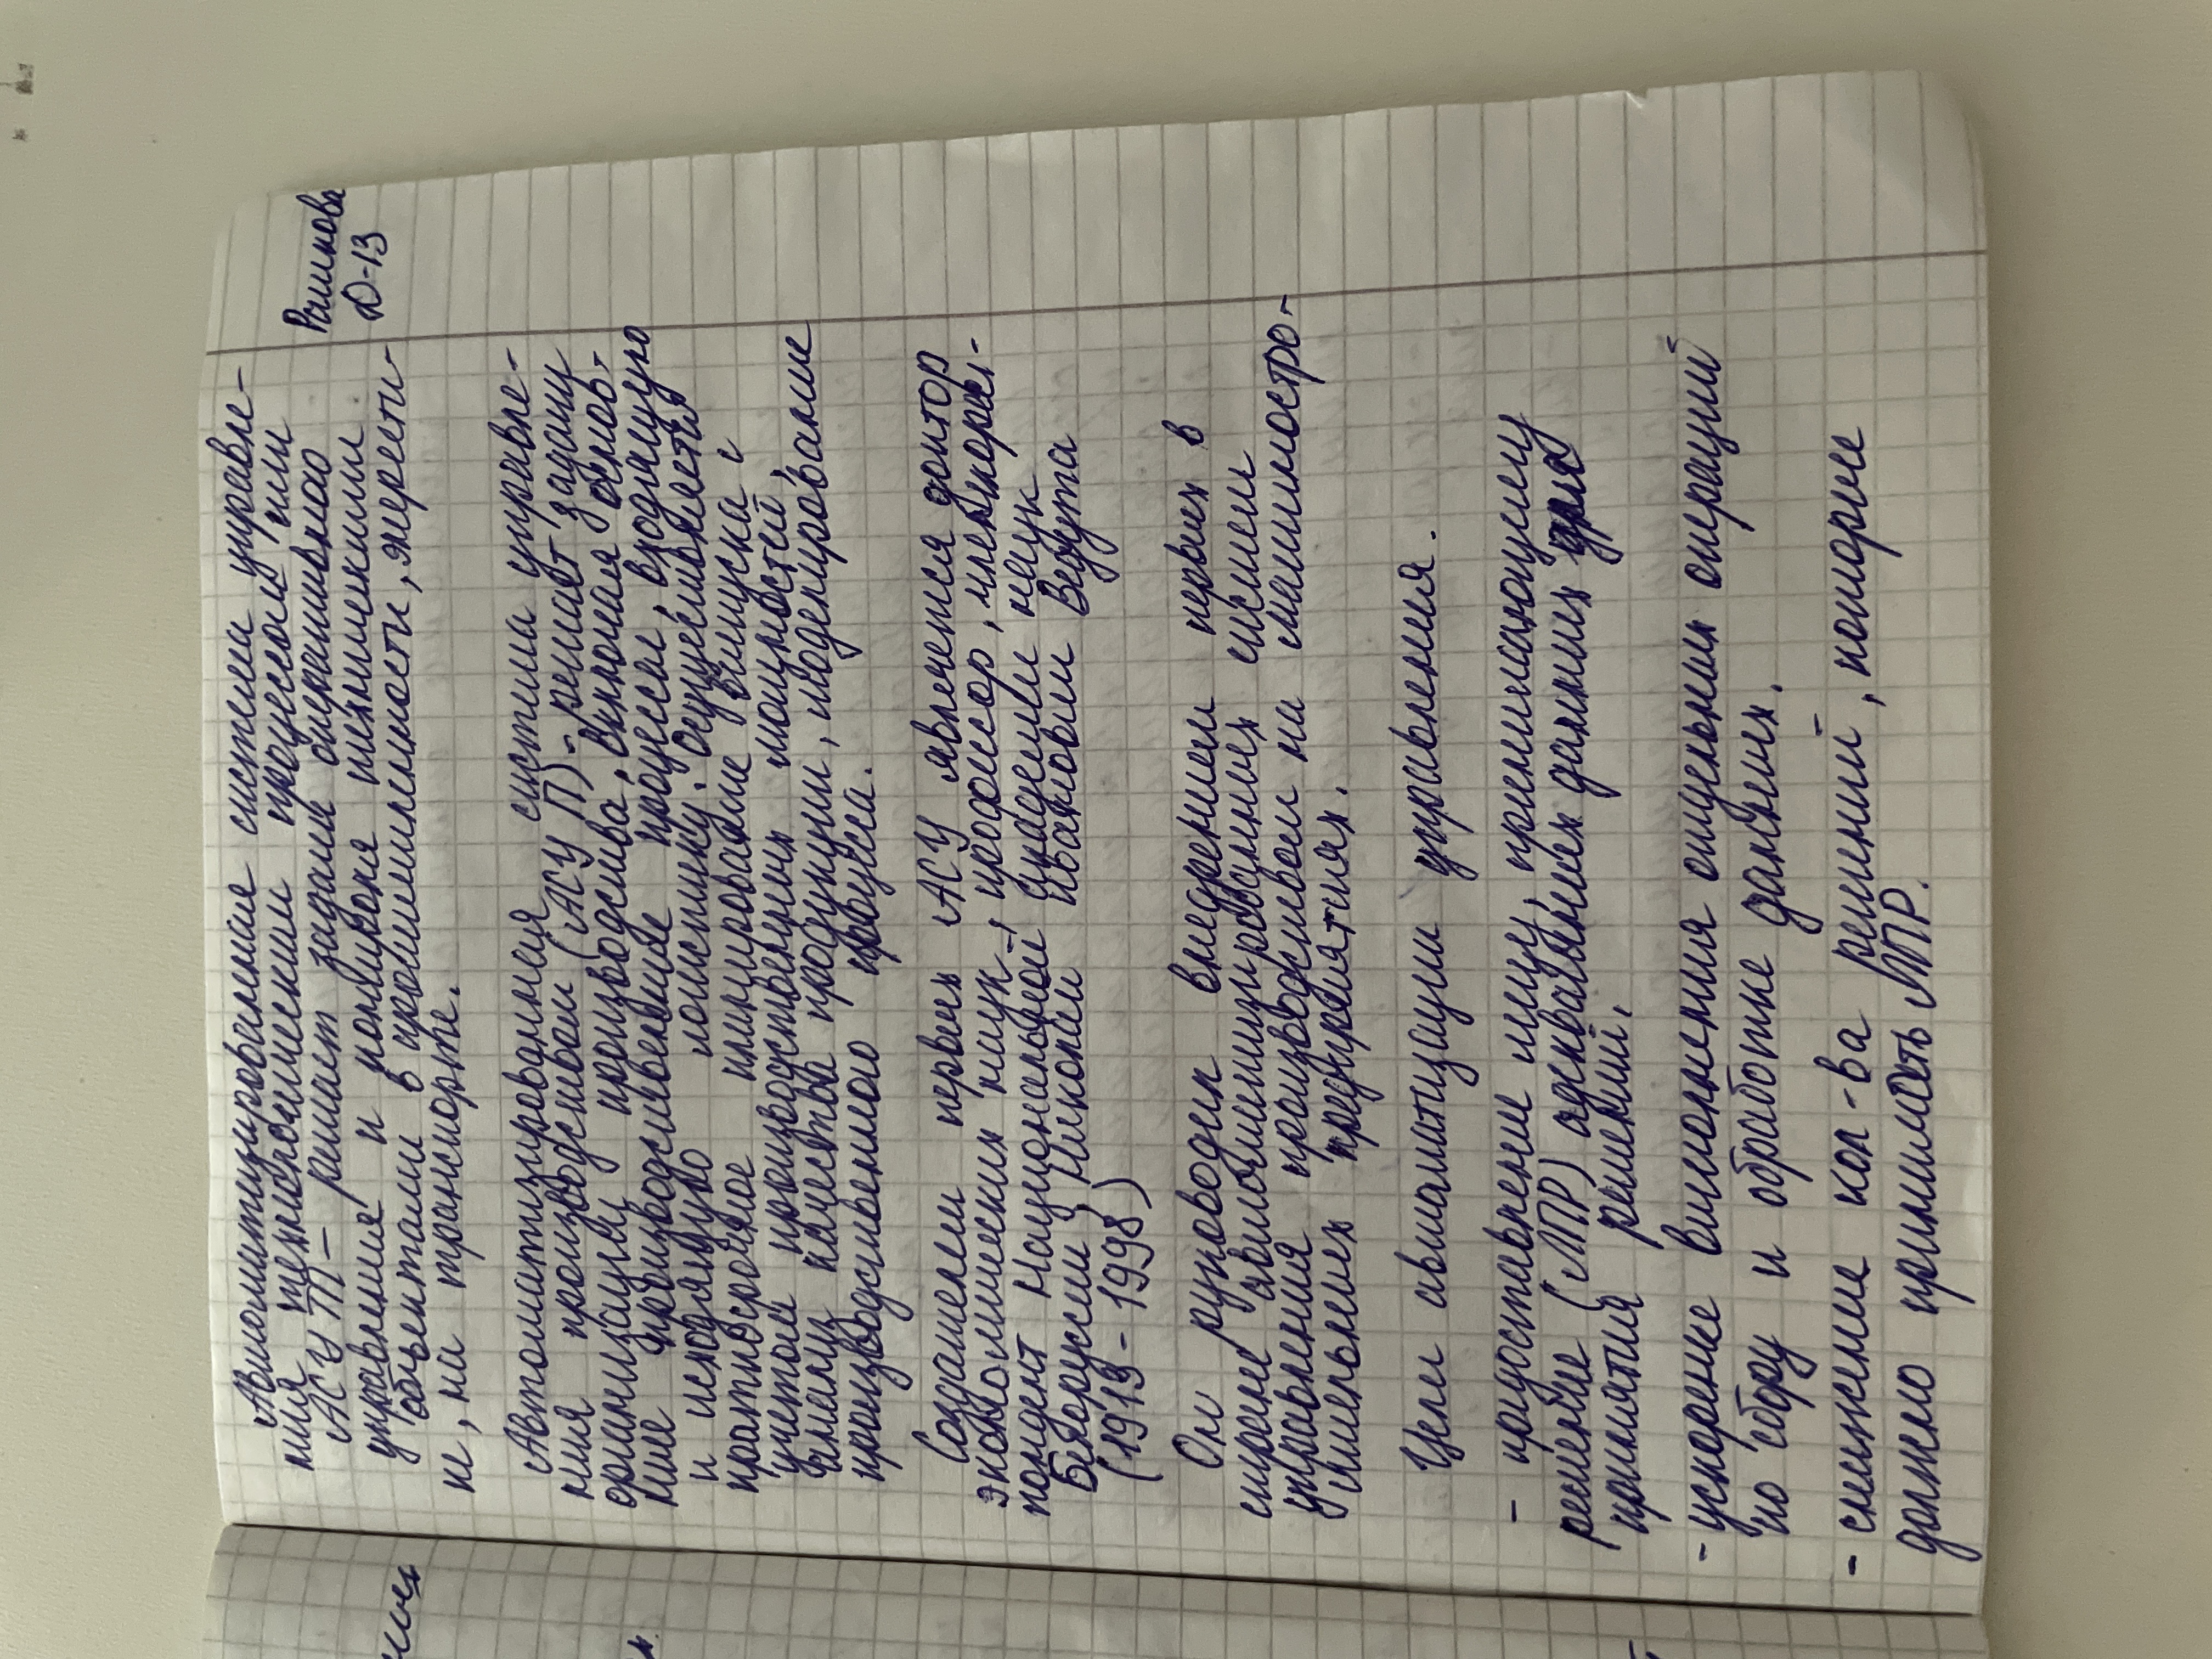 Рашикова
D-13
Автоматизированная система управле-
ния технологическим процессом или
АСУ ТП – решает задачи оперативного
управления и контроля техническими
объектами в промышленности, энергети-
ке, на транспорте.
Автоматизированная система управле-
ния производством (АСУ П) – решает задачи
организации производства, включая основ-
ные производственные процессы, входящую
и исходящую логистику. Осуществляется
краткосрочное планирование выпуска с
учетом производственных мощностей,
анализ качества продукции, моделирование
производственного процесса.
Создателем первых АСУ является доктор
экономических наук, профессор, член-коррес-
пондент Национальной академии наук
Белоруссии Николай Иванович Ведута
(1913 - 1998)
Он руководил внедрением первых в
стране автоматизированных систем
управления производством на машиностро-
ительных предприятиях.
Цели автоматизации управления.
- предоставление лицу, принимающему
решение (ЛПР) адекватных данных для
принятия решений.
- ускорение выполнения отдельных операций
по сбору и обработке данных.
- снижение кол-ва решений, которые
должно принимать ЛПР.